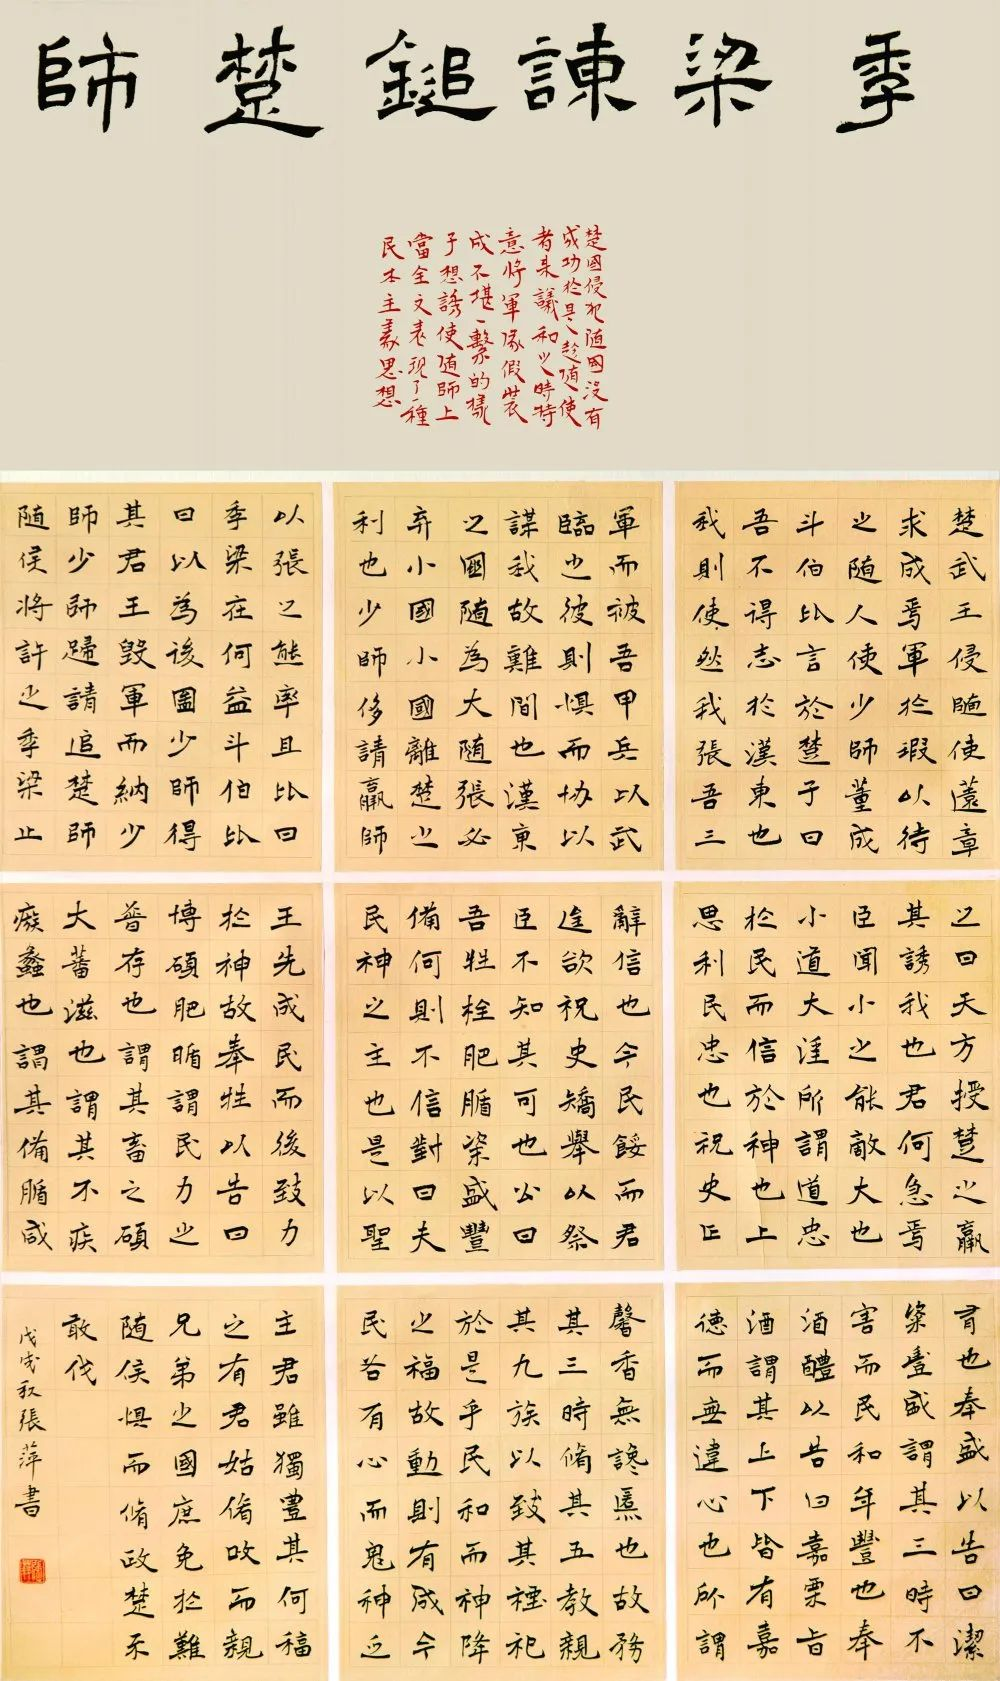 季梁諫鎚楚師
楚國侵犯随國沒有
成功於是趁随使
者来議和之時特
意将軍隊假裝
成不堪一擊的樣
子想誘使随師上
當全文表現了一種
民本主義思想
楚武王侵随使薳章
求成焉軍於瑕以待
之随人使少師董成
斗伯比言於楚子曰
吾不得志於漢東也
我則使然我張吾三
軍而被吾甲兵以武
臨之彼則懼而協以
謀我故難間也漢東
之國随為大随張必
弃小國小國離楚之
利也少師侈請羸師
以張之熊率且比曰
季梁在何益斗伯比
曰以為後圖少師得
其君王毀軍而納少
師少師歸請追楚師
随侯将許之季梁止
之曰天方授楚之羸
其誘我也君何急焉
臣聞小之能敵大也
小道大淫所謂道忠
於民而信於神也上
思利民忠也祝史正
辭信也今民餒而君
逞欲祝史矯舉以祭
臣不知其可也公曰
吾牲牷肥腯粢盛豐
備何則不信對曰夫
民神之主也是以聖
王先成民而後致力
於神故奉牲以告曰
博碩肥腯謂民力之
普存也謂其畜之碩
大蕃滋也謂其不疾
瘯蠡也謂其備腯咸
有也奉盛以告曰潔
粢豐盛謂其三時不
害而民和年豐也奉
酒醴以告曰嘉栗旨
酒謂其上下皆有嘉
德而無違心也所謂
馨香無讒慝也故務
其三時脩其五教親
其九族以致其禋祀
於是乎民和而神降
之福故動則有成今
民各有心而鬼神乏
主君雖獨豐其何福
之有君姑脩政而親
兄弟之國庶免於難
随侯懼而脩政楚不
敢伐
戊戌秋張萍書